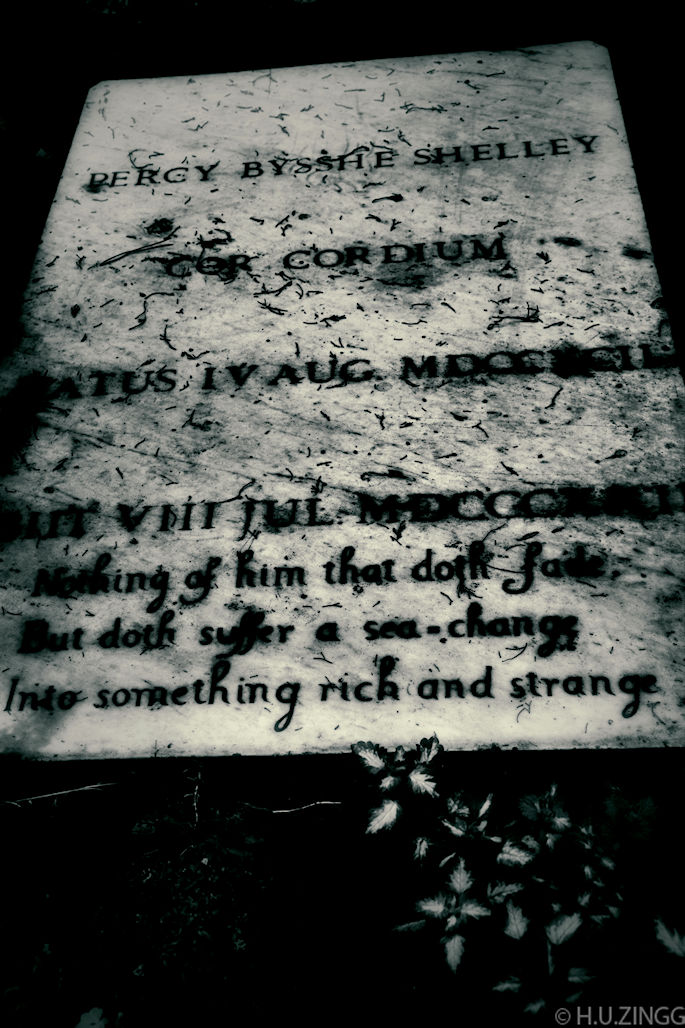 PERCY BYSSHE SHELLEY
COR CORDIUM
NATUS IV AUG. MDCCXCII
OBIIT VIII JUL. MDCCCXXII
Nothing of him that doth fade,
But doth suffer a sea-change
Into something rich and strange
© H.U.ZINGG